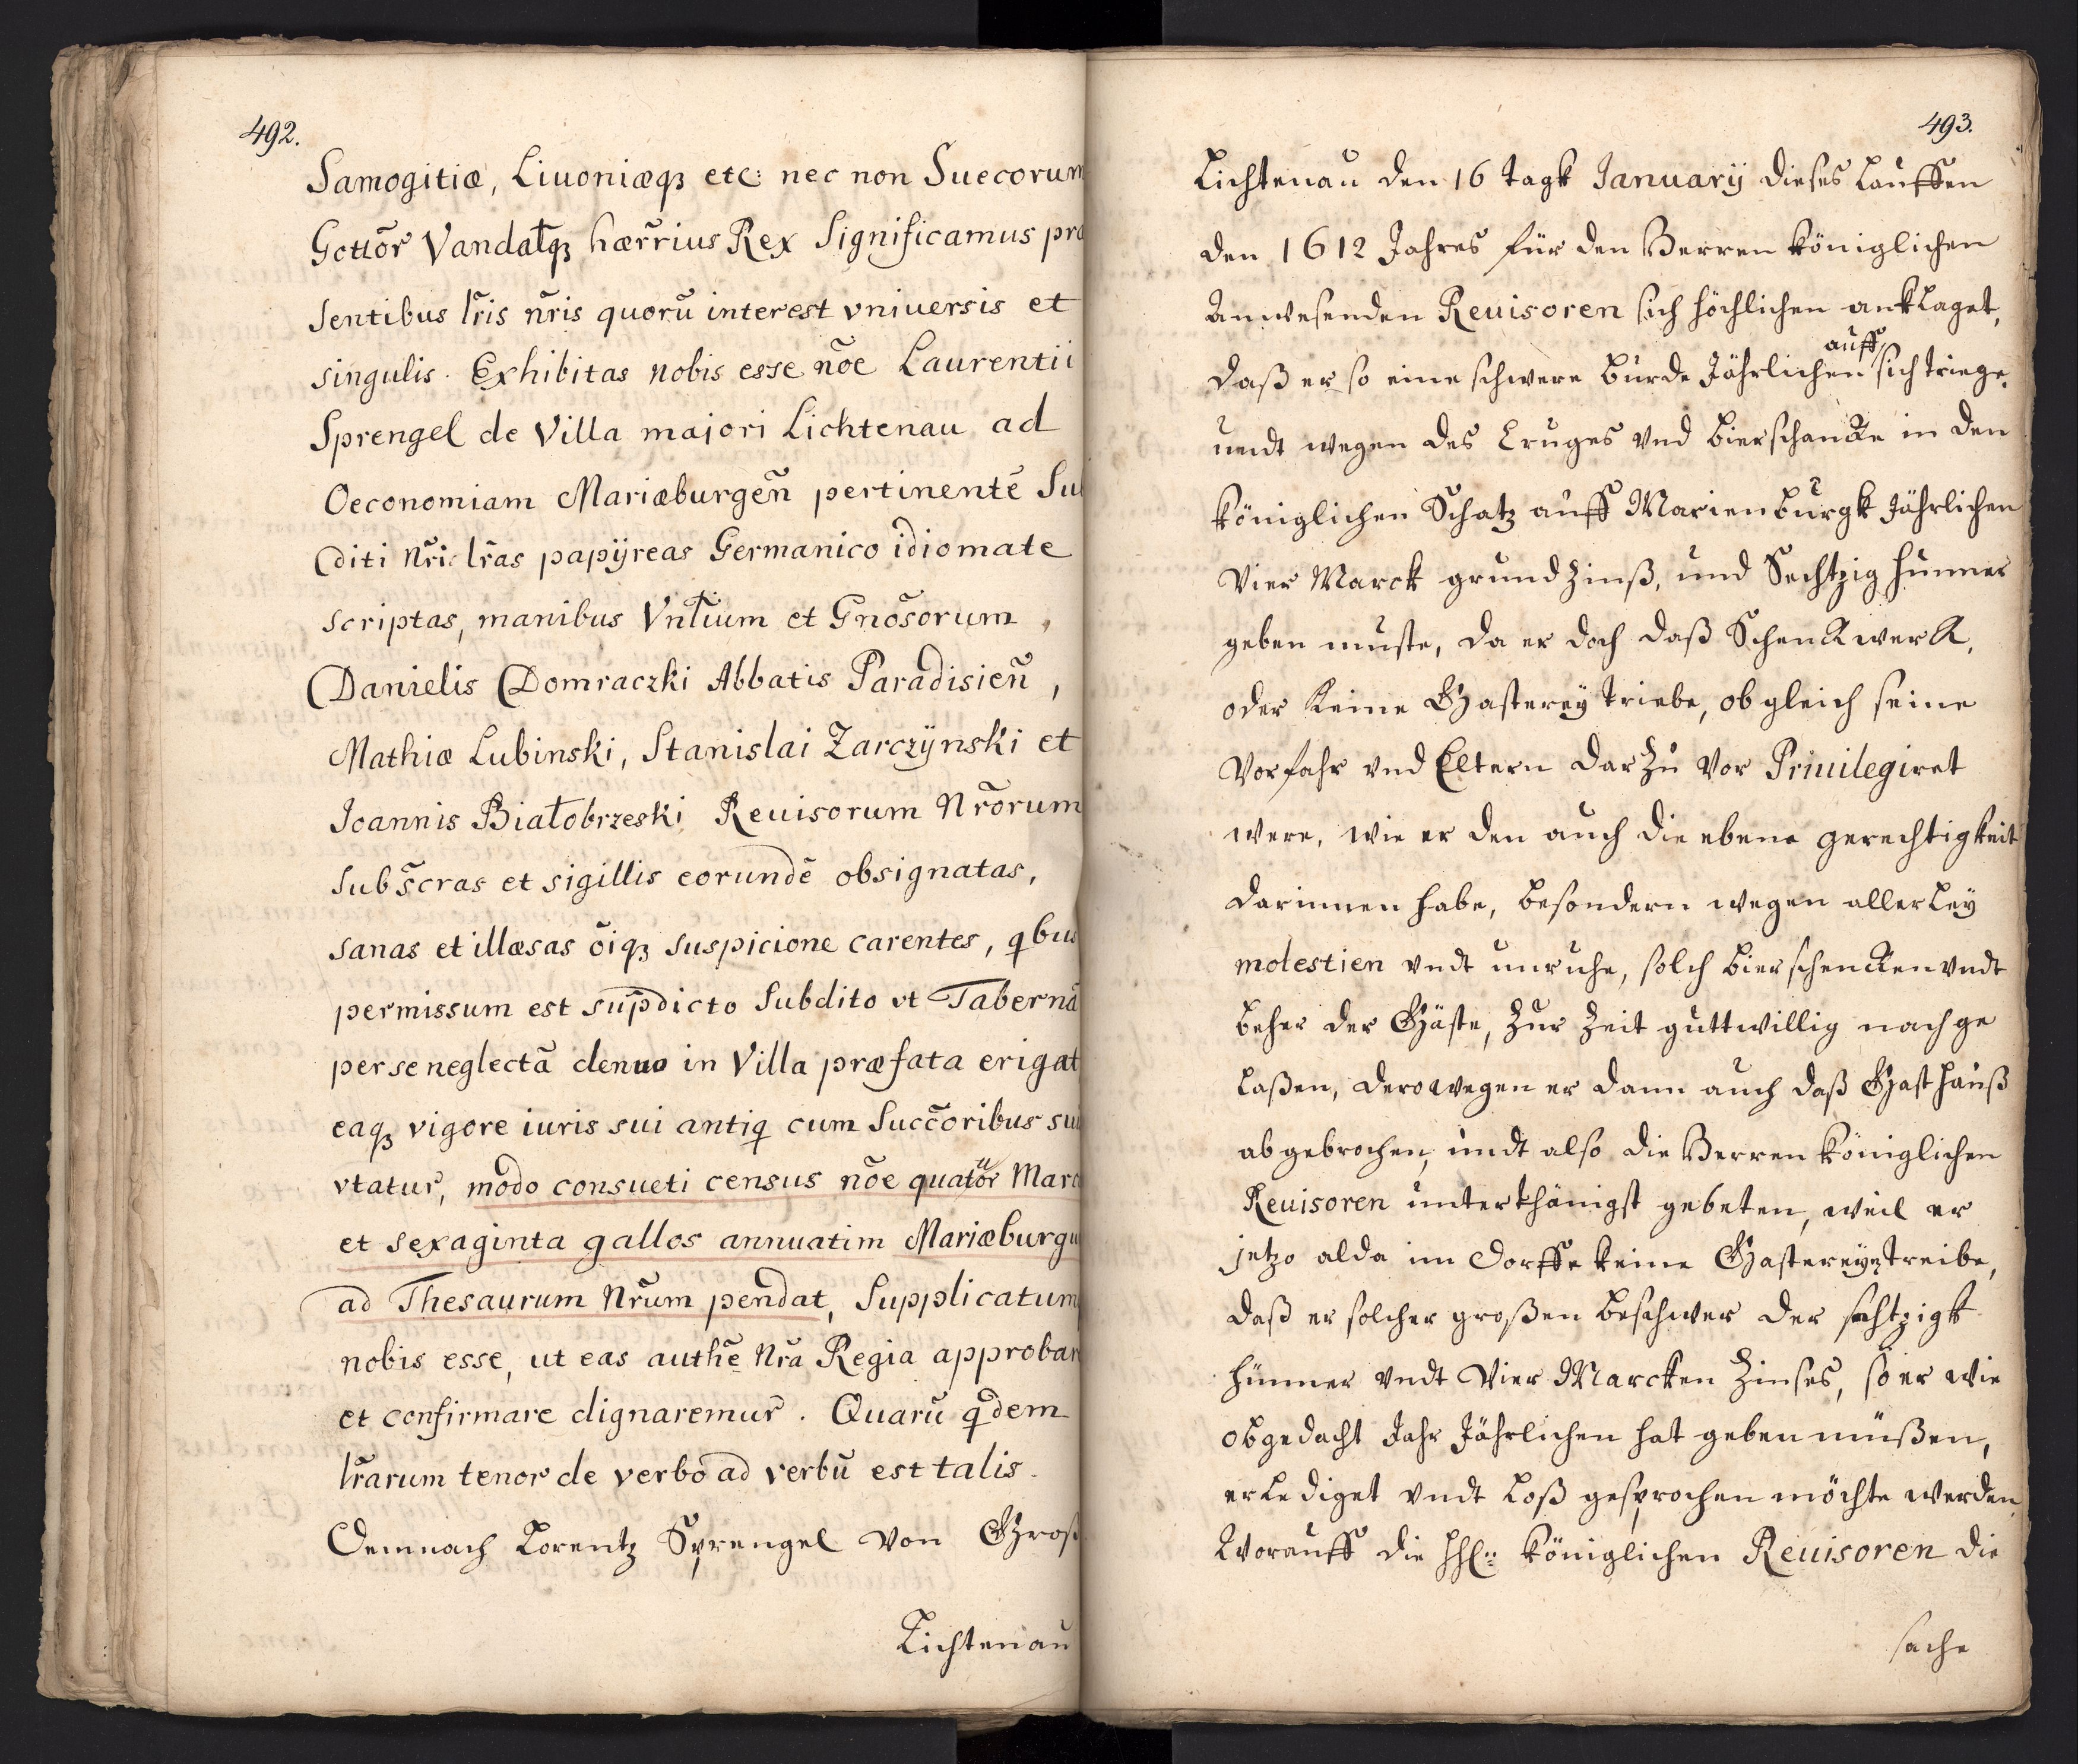 492.
Samogitiæ, Liuoniæqꝫ etc: nec non Suecorum
Gottõr Vandalqꝫ hær̃rius Rex Significamus præ
sentibus lr̃is nr̃is quorũ interest vniuersis et
singulis. Exhibitas nobis esse nõe Laurentii
Sprengel de Villa majori Lichtenau ad
Oeconomiam Mariæburgeñ pertinentẽ Sub
diti nr̃i lr̃as papÿreas Germanico idiomate
scriptas, manibus Vnl̃ium et Gnõsorum,
Danielis Domraczki Abbatis Paradisieñ,
Mathiæ Lubinski, Stanislai Zarczÿnski et
Joannis Białobrzeski Reuisorum Nr̃orum
subs̃cras et sigillis eorundẽ obsignatas,
sanas et illæsas õiqꝫ suspicione carentes, qbus
permissum est sup̃dicto Subdito vt Tabernã
per se neglectã denuo in Villa præfata erigat
eaqꝫ vigore iuris sui antiq cum Succõribus sui
vtatur, modo consueti census nõe quatuõr Marc
et sexaginta gallos annuatim Mariæburgu
ad Thesaurum Nr̃um pendat, Supplicatumqꝫ
nobis esse, ut eas authẽ Nr̃a Regia approbare
et confirmare dignaremur. Quarũ qdem
lr̃arum tenor de verbo ad verbũ est talis.
Demnach Lorentz Sprengel von Groß
Lichtenau
493.
Lichtenau den 16 tagk January dieses Lauffen
den 1612 Jahres für den Herren königlichen
Anwesenden Reuisoren sich höchlichen anklaget,
daß er so eine schwere burde Jährlichen auff sich triege,
undt wegen des Cruges vnd bierschancke in den
königlichen Schatz auff Marienburgk Jährlichen
vier Marck grundzinß, und Sechtzig hunner
geben muste, da er doch daß Schenckwerck,
oder keine Gasterey triebe, ob gleich seine
Vorfahr vnd Eltern darzu vor Priuilegiret
were, wie er den auch die ebene gerechtigkeit
darinnen habe, besondern wegen allerley
molestien vndt unruhe, solch bierschencken vndt
beher der Gäste, zur Zeit guttwillig nachge
laßen, derowegen er dann auch daß Gasthauß
abgebrochen, undt also die Herren königlichen
Reuisoren unterthänigst gebeten, weil er
jetzo alda im Dorffe keine Gastereyn treibe,
daß er solcher großen beschwer der sechtzigk
hünner vndt vier Marcken Zinses, so er wie
obgedacht Jahr Jährlichen hat geben müßen,
erlediget vndt loß gesprochen möchte werden
Worauff die HH: königlichen Reuisoren die
sache